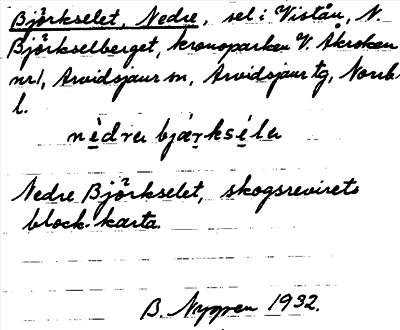 Björkselet, Nedre, sel i Vistån, N.
Björkselberget, kronoparken V. Akroken
nr 1, Arvidsjaur sn, Arvidsjaur tg, Norrb.
l.
nèdrɐ bjærkséla
Nedre Björkselet, skogsrevirets
block-karta.
B. Nygren 1932.